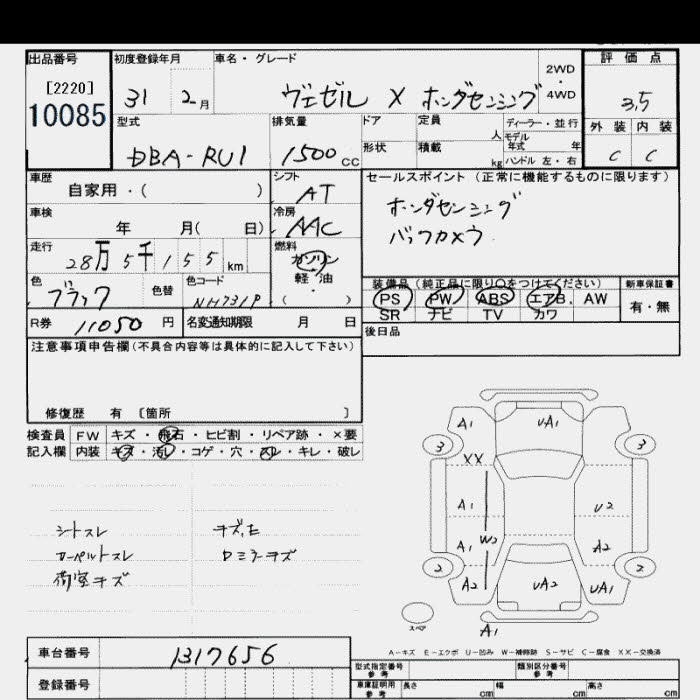 出品番号 初度登録年月 車名・グレード 評価点
[2220]
10085
31 2月 ヴェゼル X ホンダセンシング 2WD・4WD 3.5
型式 排気量 ドア 定員 人 ディーラー・並行 外装 内装
モデル年式 年
DBA-RU1 1500cc 形状 積載 kg ハンドル 左・右 C C
車歴 シフト セールスポイント (正常に機能するものに限ります)
自家用・( ) AT ホンダセンシング
車検 冷房 バックカメラ
年 月( 日) AAC
走行 燃料
28万5千155km ガソリン
軽油
・
( )
色 色替 色コード 装備品 (純正品に限り○をつけてください) 新車保証書
ブラック NH731P PS PW ABS エアB. AW 有・無
SR ナビ TV カワ
R券 11050 円 名変通知期限 月 日 後日品
注意事項申告欄(不具合内容等は具体的に記入して下さい)
修復歴 有 〔箇所 〕
検査員 FW キズ・飛石・ヒビ割・リペア跡・×要
記入欄 内装 キズ・汚レ・コゲ・穴・スレ・キレ・破レ
シートスレ
カーペットスレ
荷室キズ
キズ,E
ロミラーキズ
A1 UA1
3 3
XX
A1 U2
A1 W2 A2
2 2
A2 UA2 UA1
スペア A1
A-キズ E-エクボ U-凹み W-補修跡 S-サビ C-腐食 XX-交換済
車台番号 1317656
登録番号
型式指定番号 参考 類別区分番号 参考
車庫証明用 参考 長さ cm 幅 cm 高さ cm